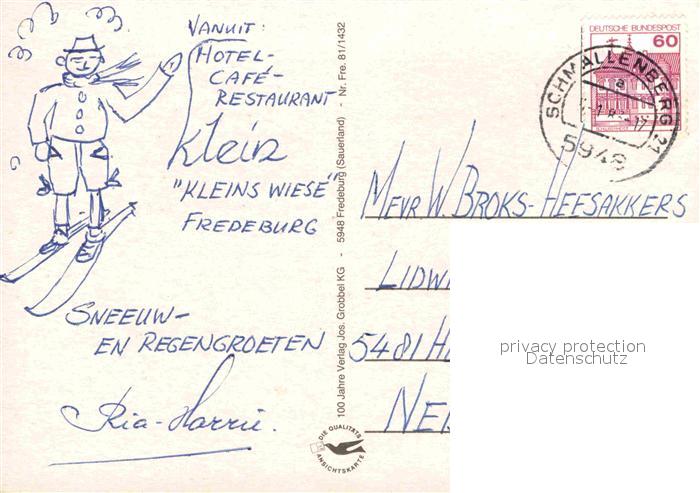 VANUIT:
HOTEL-
CAFÉ-
RESTAURANT
Klein
"KLEINS WIESE"
FREDEBURG
SNEEUW-
EN REGENGROETEN
Ria-Harrie.
100 Jahre Verlag Jos. Grobbel KG - 5948 Fredeburg (Sauerland) - Nr. Fre. 81/1432
DIE QUALITÄTS
ANSICHTSKARTE
DEUTSCHE BUNDESPOST
60
SCHMALLENBERG 21
a
5948
MEVR W. BROKS-HEESAKKERS
LIDW
5481 H
NE
privacy protection
Datenschutz